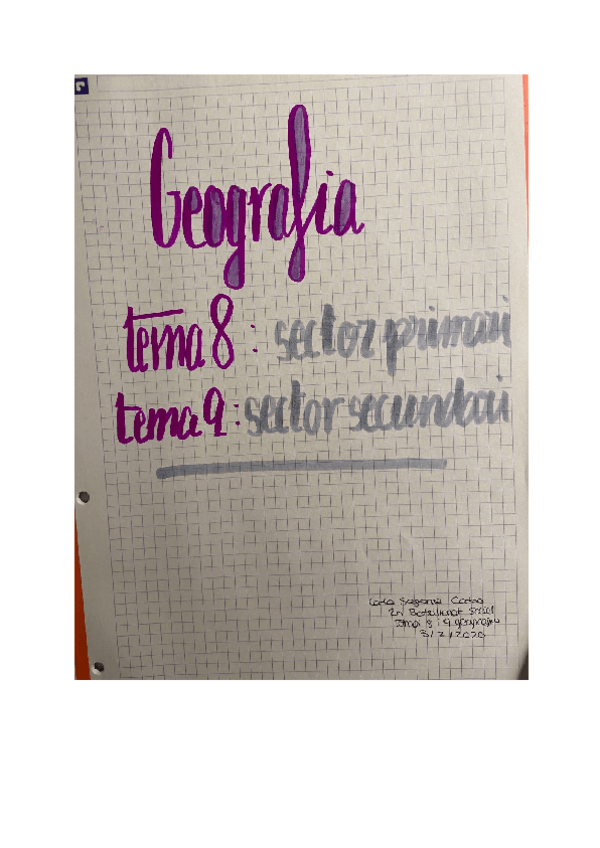 Geografia
tema 8: sector primari
tema 9: sector secundari
2n Batxillerat Social
tema 8 i 9 geografia
3/2/2020